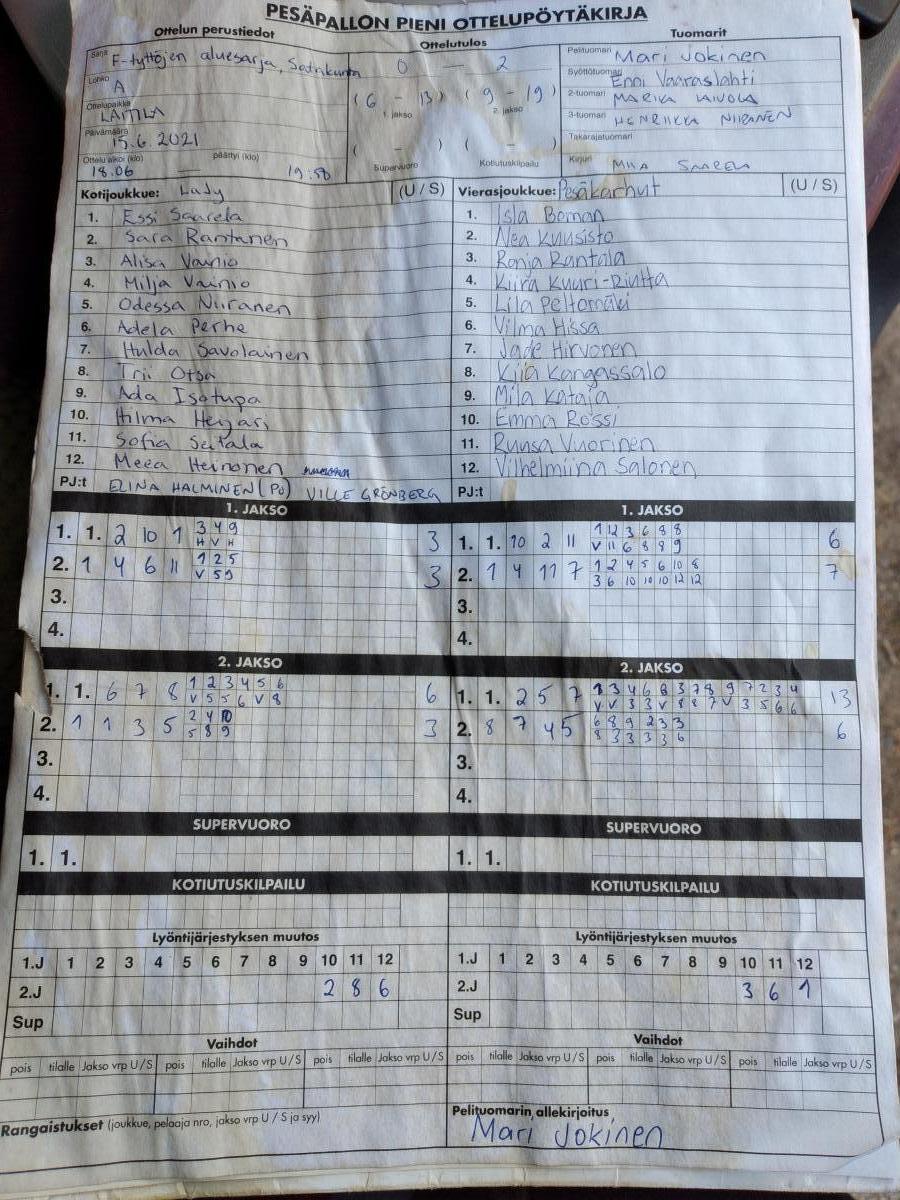 PESÄPALLON PIENI OTTELUPÖYTÄKIRJA
Ottelun perustiedot Ottelutulos Tuomarit
Sarja F-tyttöjen aluesarja, Satakunta 0 — 2 Pelituomari Mari Jokinen
Lohko A Syöttötuomari Enni Vaaraslahti
Ottelupaikka LAITILA (6 - 13) (9 - 19) 2-tuomari MARIKA LAIVOLA
1. jakso 2. jakso 3-tuomari HENRIIKKA NIIRANEN
Päivämäärä 15.6.2021 Takarajatuomari
Ottelu alkoi (klo) 18.06 — päättyi (klo) 19:58 ( - ) Supervuoro ( - ) Kotiutuskilpailu Kirjuri MIIA SAARELA
Kotijoukkue: Lady (U / S) Vierasjoukkue: Pesäkarhut (U / S)
1. Essi Saarela 1. Isla Boman
2. Sara Rantanen 2. Nea Kuusisto
3. Alisa Vainio 3. Ronja Rantala
4. Milja Vainio 4. Kiira Kuuri-Riutta
5. Odessa Niiranen 5. Lila Peltomäki
6. Adela Perhe 6. Vilma Hissa
7. Hulda Savolainen 7. Jade Hirvonen
8. Irii Otsa 8. Kiia Kangassalo
9. Ada Isotupa 9. Mila Kataja
10. Hilma Heijari 10. Emma Rossi
11. Sofia Seitala 11. Ruusa Vuorinen
12. Meea Heinonen 12. Vilhelmiina Salonen
PJ:t ELINA HALMINEN (PJ) VILLE GRÖNBERG PJ:t
1. JAKSO 1. JAKSO
1. 1. 2 10 1 3 4 9 3 1. 1. 10 2 11 1 12 3 6 8 8 6
H V H V 11 6 8 8 9
2. 1 4 6 11 1 2 5 3 2. 1 4 11 7 1 2 4 5 6 10 8 7
V 5 9 3 6 10 10 10 12 12
3. 3.
4. 4.
2. JAKSO 2. JAKSO
1. 1. 6 7 8 1 2 3 4 5 6 6 1. 1. 2 5 7 1 3 4 6 8 3 7 8 9 7 2 3 4 13
V 5 5 6 V 8 V V 3 3 V 8 8 7 V 3 5 6 6
2. 1 1 3 5 2 4 10 3 2. 8 7 4 5 6 8 9 2 3 3 6
5 8 9 8 3 3 3 3 6
3. 3.
4. 4.
SUPERVUORO SUPERVUORO
1. 1. 1. 1.
KOTIUTUSKILPAILU KOTIUTUSKILPAILU
Lyöntijärjestyksen muutos Lyöntijärjestyksen muutos
1.J 1 2 3 4 5 6 7 8 9 10 11 12 1.J 1 2 3 4 5 6 7 8 9 10 11 12
2.J 2 8 6 2.J 3 6 1
Sup Sup
Vaihdot Vaihdot
pois tilalle Jakso vrp U / S pois tilalle Jakso vrp U / S pois tilalle Jakso vrp U / S pois tilalle Jakso vrp U / S pois tilalle Jakso vrp U / S pois tilalle Jakso vrp U / S
Rangaistukset (joukkue, pelaaja nro, jakso vrp U / S ja syy) Pelituomarin allekirjoitus
Mari Jokinen